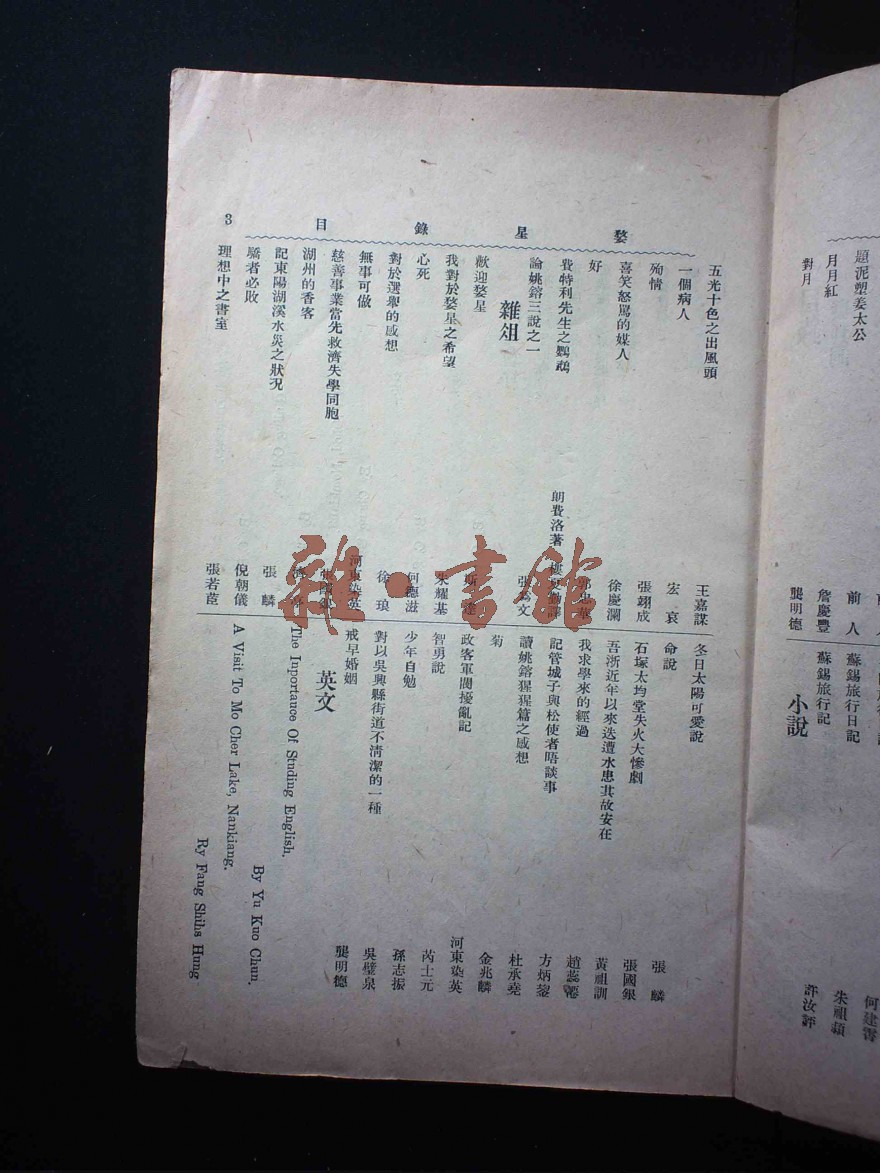 題泥塑姜太公
月月紅
對月
前人
詹慶豐
龔明德
蘇錫旅行日記
蘇錫旅行記
小說
何建霄
朱祖穎
許汝評
婺星錄目
3
五光十色之出風頭 王嘉謀
一個病人 宏哀
殉情 張翊成
喜笑怒罵的媒人 徐慶瀾
好
費特利先生之鸚鵡 朗費洛著
論姚鎔三說之一
雜俎
歡迎婺星
我對於婺星之希望 朱耀基
心死 何德滋
對於選舉的感想 徐琅
無事可做 河東染英
慈善事業當先救濟失學同胞
湖州的香客
記東陽湖溪水災之狀况 張麟
驕者必敗 倪朝儀
理想中之書室 張若萓
冬日太陽可愛說 張麟
命說 張國銀
石塚太均堂失火大慘劇 黃祖訓
吾浙近年以來迭遭水患其故安在 趙蕊
我求學來的經過 方炳鋆
記管城子與松使者晤談事 杜承堯
讀姚鎔猩猩篇之感想 金兆麟
菊 河東染英
政客軍閥擾亂記 芮士元
智勇說 孫志振
少年自勉 吳璧泉
對以吳興縣街道不清潔的一種
戒早婚姻 龔明德
英文
The Inportauce Of Studing English.
By Yu Kuo Chun.
A Visit To Mo Cher Lake, Nankiang.
Ry Fang Shihs Hung
雜·書館